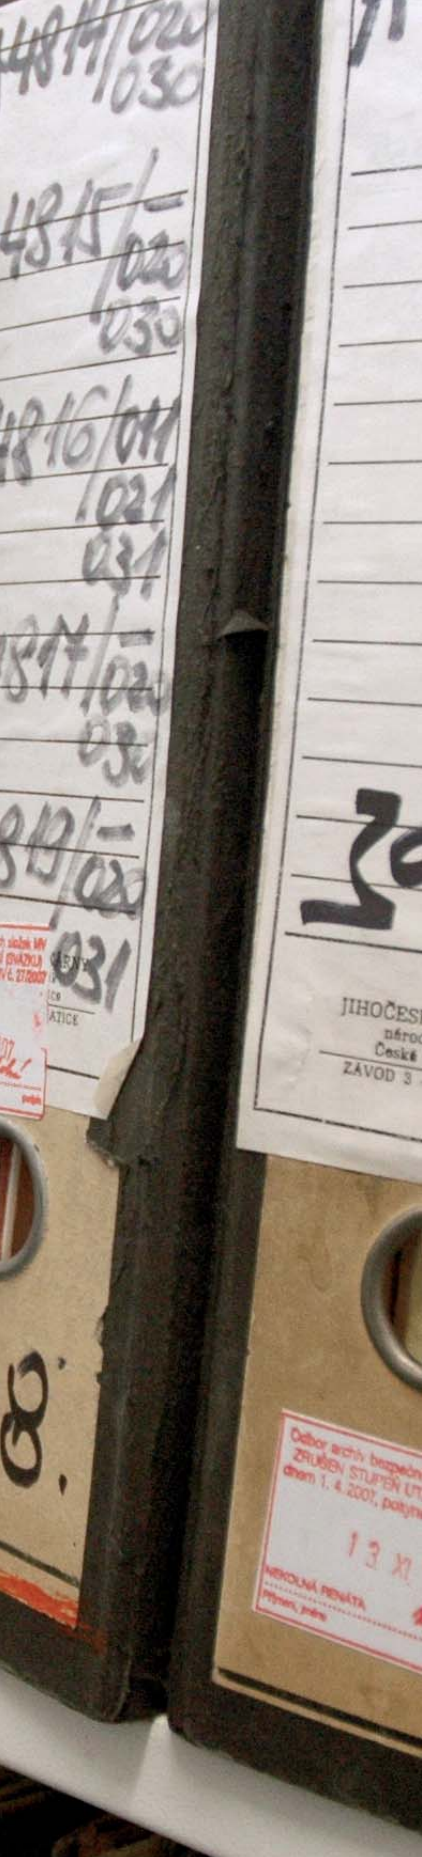 4814/020
030
4815/-
020
030
4816/011
021
031
817/-
020
030
819/-
020
031
ch složek MV
(SVAZKU)
V č. 27/2007
ATICE
podpis
8.
JIHOČES
národ
České
ZÁVOD 3
Odbor archiv bezpečn
ZRUŠEN STUPEŇ UT
dnem 1. 4. 2007, pokyne
13. XI
NEKOLNÁ RENÁTA
Příjmení, jméno